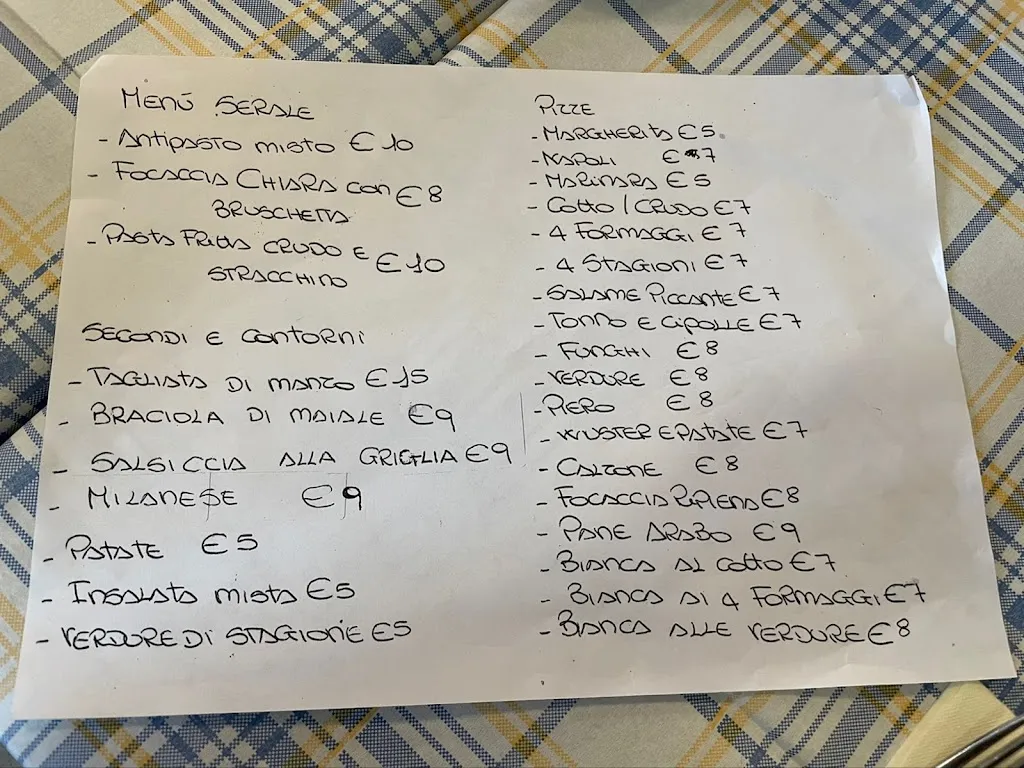 Menú SERALE
- Antipasto misto € 10
- Focaccia CHIARA con € 8
BRUSCHETTA
- Pasta Fritta CRUDO E € 10
STRACCHINO
SECONDI E Contorni
- TAGLIATA DI MANZO € 15
- BRACIOLA DI MAIALE € 9
- SALSICCIA ALLA GRIGLIA € 9
- MILANESE € 9
- PATATE € 5
- INSALATA mista € 5
- VERDURE DI STAGIONE € 5
PIZZE
- MARGHERITA € 5
- NAPOLI € 7
- MARINARA € 5
- COTTO / CRUDO € 7
- 4 FORMAGGI € 7
- 4 STAGIONI € 7
- SALAME PICCANTE € 7
- TONNO E CIPOLLE € 7
- FUNGHI € 8
- VERDURE € 8
- PIERO € 8
- WUSTER E PATATE € 7
- CALZONE € 8
- FOCACCIA RIPIENA € 8
- PANE ARABO € 9
- BIANCA AL COTTO € 7
- BIANCA AI 4 FORMAGGI € 7
- BIANCA ALLE VERDURE € 8